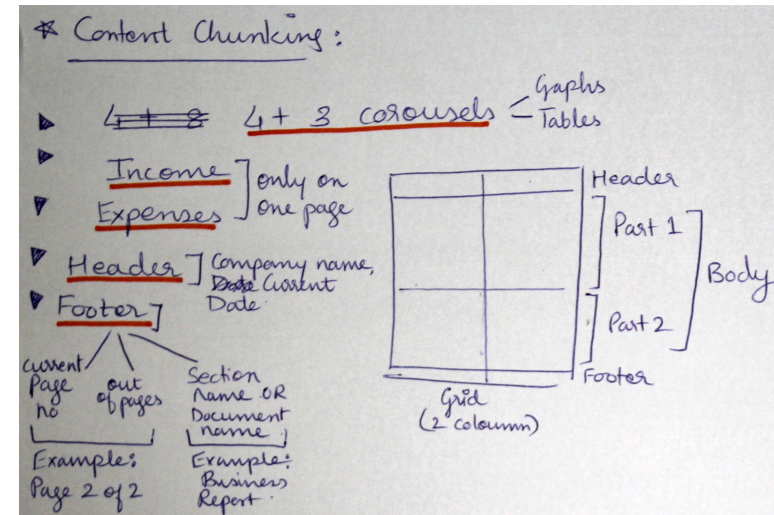 * Content Chunking:
4 + 8 4 + 3 corousels
Gaphs
Tables
Income
Expenses
only on
one page
Header
Company name,
Date Current
Date.
Footer
current
Page
no
out
of pages
Section
name OR
Document
name.
Example:
Page 2 of 2
Example:
Business
Report.
Header
Part 1
Part 2
Body
Footer
Grid
(2 coloumn)